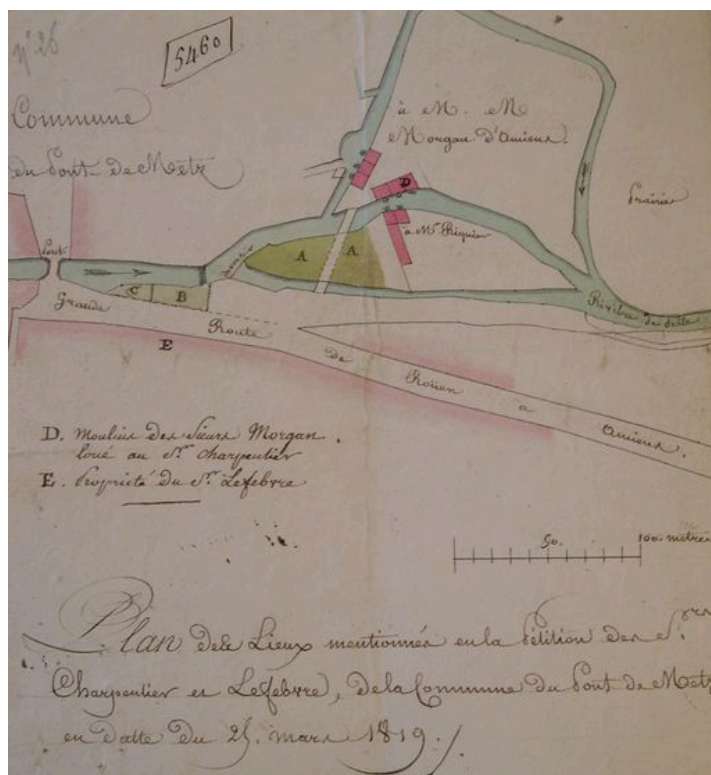 n.° 26
5460
Commune
du Pont-de-Metz
à M. M
Morgan d'Amiens.
Prairie
D
à Mr. Riquier
Pont
A
A
C
B
Rivière de Selle
Grande
Route
E
de
Rouen
à
Amiens.
D. Moulins des Sieurs Morgan.
loué au Sr. Charpentier
E. Propriété du Sr. Lefebvre
50.
100. mètres
Plan des Lieux mentionnés en la Pétition des Srs.
Charpentier et Lefebvre, de la Commune du Pont de Metz
en datte du 25. mars 1819./.